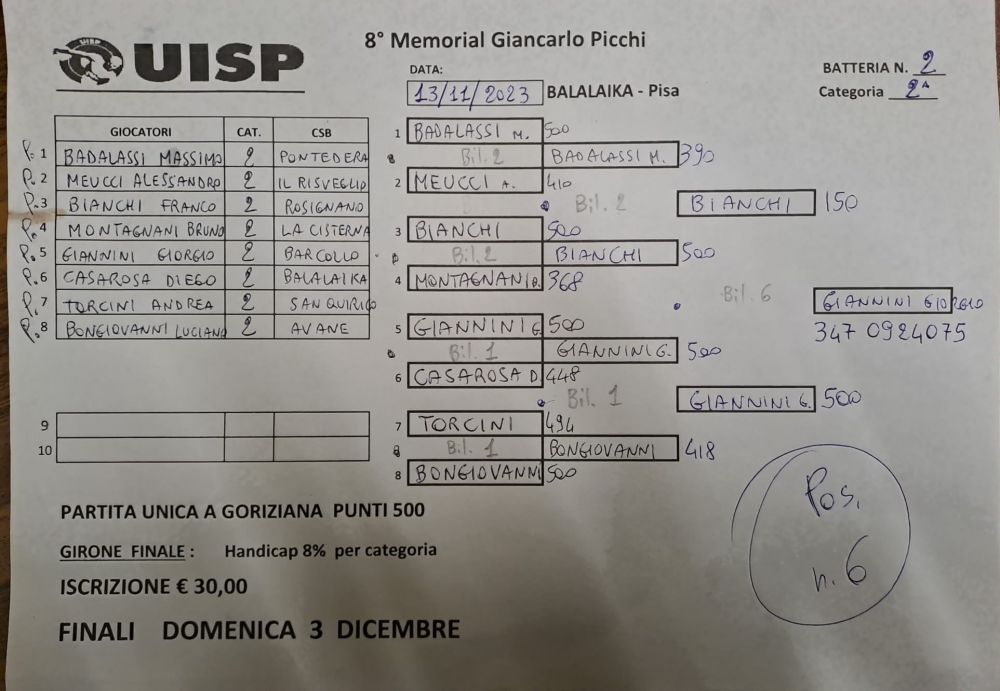 UISP
8° Memorial Giancarlo Picchi
DATA:
13/11/2023 BALALAIKA - Pisa
BATTERIA N. 2
Categoria 2ᴬ
GIOCATORI CAT. CSB
P. 1 BADALASSI MASSIMO 2 PONTEDERA
P. 2 MEUCCI ALESSANDRO 2 IL RISVEGLIO
P. 3 BIANCHI FRANCO 2 ROSIGNANO
P. 4 MONTAGNANI BRUNO 2 LA CISTERNA
P. 5 GIANNINI GIORGIO 2 BARCOLLO
P. 6 CASAROSA DIEGO 2 BALALAIKA
P. 7 TORCINI ANDREA 2 SAN QUIRICO
P. 8 BONGIOVANNI LUCIANO 2 AVANE
9
10
1 BADALASSI M. 500
Bil. 2 BADALASSI M. 390
2 MEUCCI A. 410
Bil. 2 BIANCHI 150
3 BIANCHI 500
Bil. 2 BIANCHI 500
4 MONTAGNANI B. 368
Bil. 6 GIANNINI GIORGIO
347 0924075
5 GIANNINI G. 500
Bil. 1 GIANNINI G. 500
6 CASAROSA D. 448
Bil. 1 GIANNINI G. 500
7 TORCINI 494
Bil. 1 BONGIOVANNI 418
8 BONGIOVANNI 500
Pos.
n. 6
PARTITA UNICA A GORIZIANA PUNTI 500
GIRONE FINALE : Handicap 8% per categoria
ISCRIZIONE € 30,00
FINALI DOMENICA 3 DICEMBRE